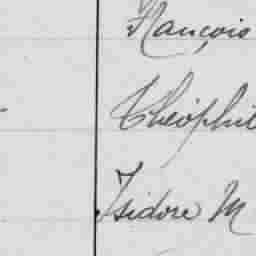 François
Théophil
Isidore M